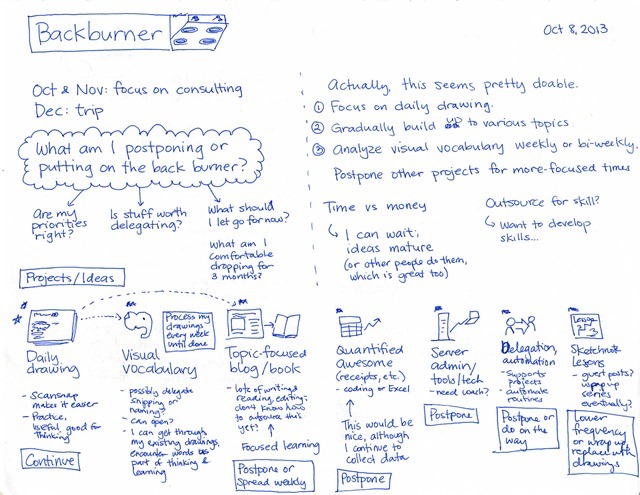 Backburner
Oct 8, 2013
Oct & Nov: focus on consulting
Dec: trip
What am I postponing or
putting on the back burner?
Are my
priorities
right?
Is stuff worth
delegating?
What should
I let go for now?
What am I
comfortable
dropping for
3 months?
Actually, this seems pretty doable.
① Focus on daily drawing.
② Gradually build up to various topics
③ Analyze visual vocabulary weekly or bi-weekly.
Postpone other projects for more-focused times
Time vs money
I can wait;
ideas mature
(or other people do them,
which is great too)
Outsource for skill?
Want to develop
skills...
Projects/Ideas
Daily
drawing
- Scansnap
makes it easier
- Practice,
useful good for
thinking
Continue
Process my
drawings
every week
until done
Visual
vocabulary
- possibly delegate
snipping or
naming?
- can open?
- I can get through
my existing drawings,
encounter words as
part of thinking &
learning
Topic-focused
blog/book
- lots of writing,
reading, editing;
don't know how
to outsource this
yet?
Focused learning
Postpone or
spread weekly
Quantified
Awesome
(receipts, etc.)
- coding or Excel
This would be
nice, although
I continue to
collect data
Postpone
Server
admin/
tools/tech
- need work?
Postpone
Delegation,
automation
- supports
projects
- automate
routines
Postpone or
do on the
way
Lesson
Sketchnote
Lessons
- guest posts?
series
eventually?
Lower
frequency
or wrap up,
replace with
drawings